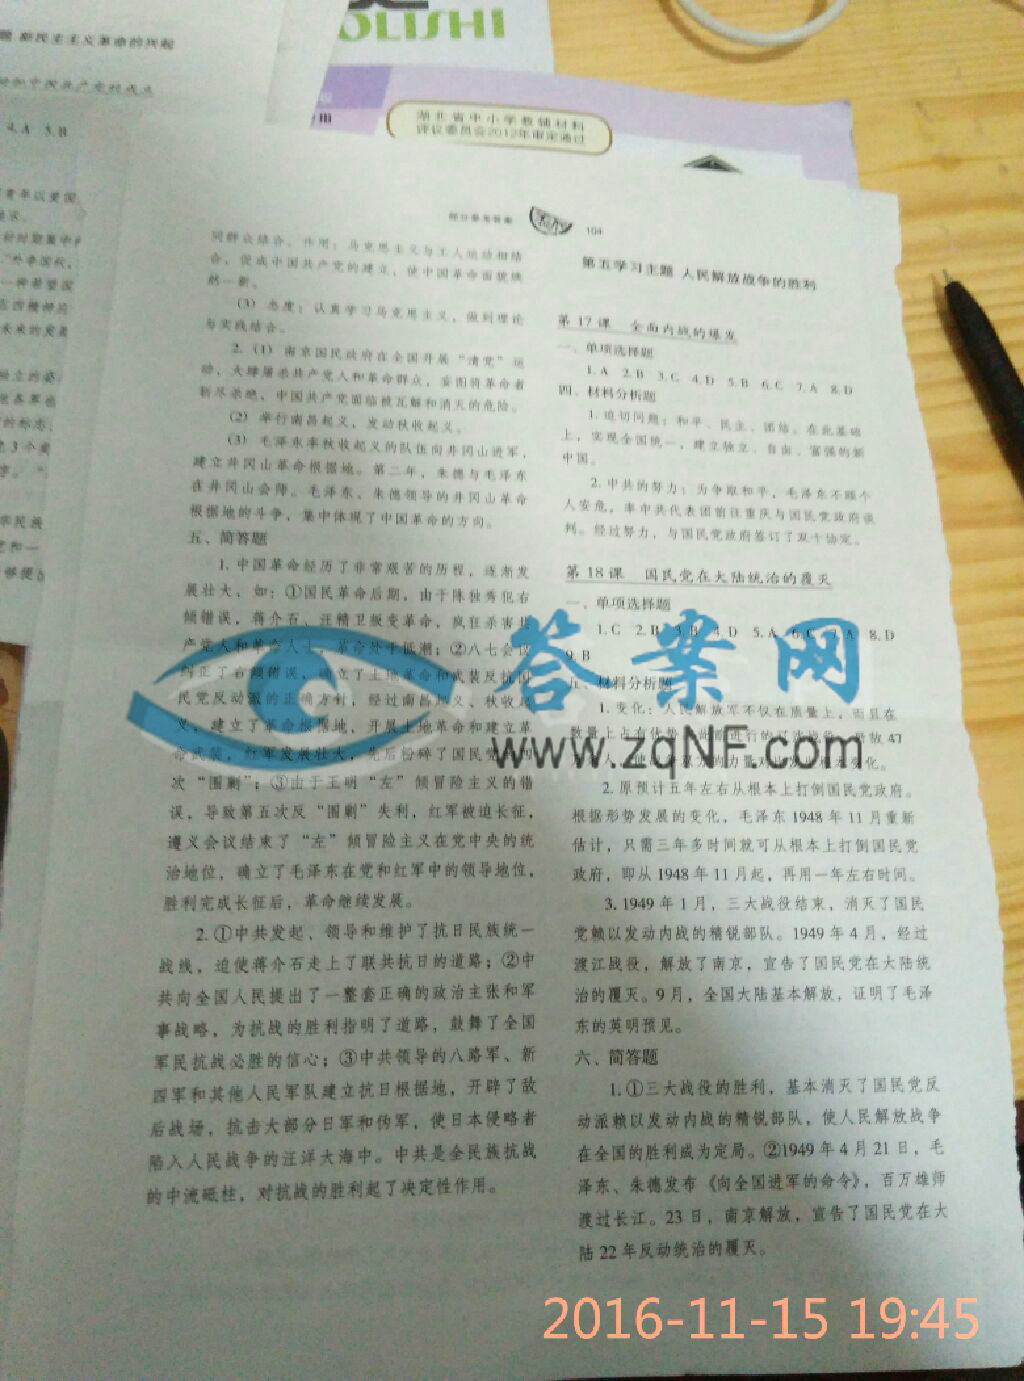 OLISHI
题 新民主主义革命的兴起
4.A 5.B
湖北省中小学教辅材料
评议委员会2012年审定通过
部分参考答案
104
同群众结合。作用：马克思主义与工人运动相结
合，促成中国共产党的建立，使中国革命面貌焕
然一新。
（3）态度：认真学习马克思主义，做到理论
与实践结合。
2.（1）南京国民政府在全国开展“清党”运
动，大肆屠杀共产党人和革命群众，妄图将革命者
斩尽杀绝，中国共产党面临被瓦解和消灭的危险。
（2）举行南昌起义，发动秋收起义。
（3）毛泽东率秋收起义的队伍向井冈山进军，
建立井冈山革命根据地。第二年，朱德与毛泽东
在井冈山会师。毛泽东、朱德领导的井冈山革命
根据地的斗争，集中体现了中国革命的方向。
五、简答题
1.中国革命经历了非常艰苦的历程，逐渐发
展壮大。如：①国民革命后期，由于陈独秀犯右
倾错误，蒋介石、汪精卫叛变革命，疯狂杀害共
产党人和革命人士，革命处于低潮；②八七会议
纠正了右倾错误，确立了土地革命和武装反抗国
民党反动派的正确方针，经过南昌起义、秋收起
义，建立了革命根据地，开展土地革命和建立革
命武装，红军发展壮大，先后粉碎了国民党的四
次“围剿”；③由于王明“左”倾冒险主义的错
误，导致第五次反“围剿”失利，红军被迫长征，
遵义会议结束了“左”倾冒险主义在党中央的统
治地位，确立了毛泽东在党和红军中的领导地位，
胜利完成长征后，革命继续发展。
2.①中共发起、领导和维护了抗日民族统一
战线，迫使蒋介石走上了联共抗日的道路；②中
共向全国人民提出了一整套正确的政治主张和军
事战略，为抗战的胜利指明了道路，鼓舞了全国
军民抗战必胜的信心；③中共领导的八路军、新
四军和其他人民军队建立抗日根据地，开辟了敌
后战场，抗击大部分日军和伪军，使日本侵略者
陷入人民战争的汪洋大海中。中共是全民族抗战
的中流砥柱，对抗战的胜利起了决定性作用。
第五学习主题 人民解放战争的胜利
第17课 全面内战的爆发
一、单项选择题
1.A 2.B 3.C 4.D 5.B 6.C 7.A 8.D
四、材料分析题
1.迫切问题：和平、民主、团结。在此基础
上，实现全国统一，建立独立、自由、富强的新
中国。
2.中共的努力：为争取和平，毛泽东不顾个
人安危，率中共代表团前往重庆与国民党政府谈
判。经过努力，与国民党政府签订了双十协定。
第18课 国民党在大陆统治的覆灭
一、单项选择题
1.C 2.B 3.B 4.D 5.A 6.C 7.A 8.D
9.B
五、材料分析题
1.变化：人民解放军不仅在质量上，而且在
数量上占有优势
2.原预计五年左右从根本上打倒国民党政府。
根据形势发展的变化，毛泽东1948年11月重新
估计，只需三年多时间就可从根本上打倒国民党
政府，即从1948年11月起，再用一年左右时间。
3.1949年1月，三大战役结束，消灭了国民
党赖以发动内战的精锐部队。1949年4月，经过
渡江战役，解放了南京，宣告了国民党在大陆统
治的覆灭。9月，全国大陆基本解放，证明了毛泽
东的英明预见。
六、简答题
1.①三大战役的胜利，基本消灭了国民党反
动派赖以发动内战的精锐部队，使人民解放战争
在全国的胜利成为定局。②1949年4月21日，毛
泽东、朱德发布《向全国进军的命令》，百万雄师
渡过长江。23日，南京解放，宣告了国民党在大
陆22年反动统治的覆灭。
答案网
www.zqNF.com
2016-11-15 19:45